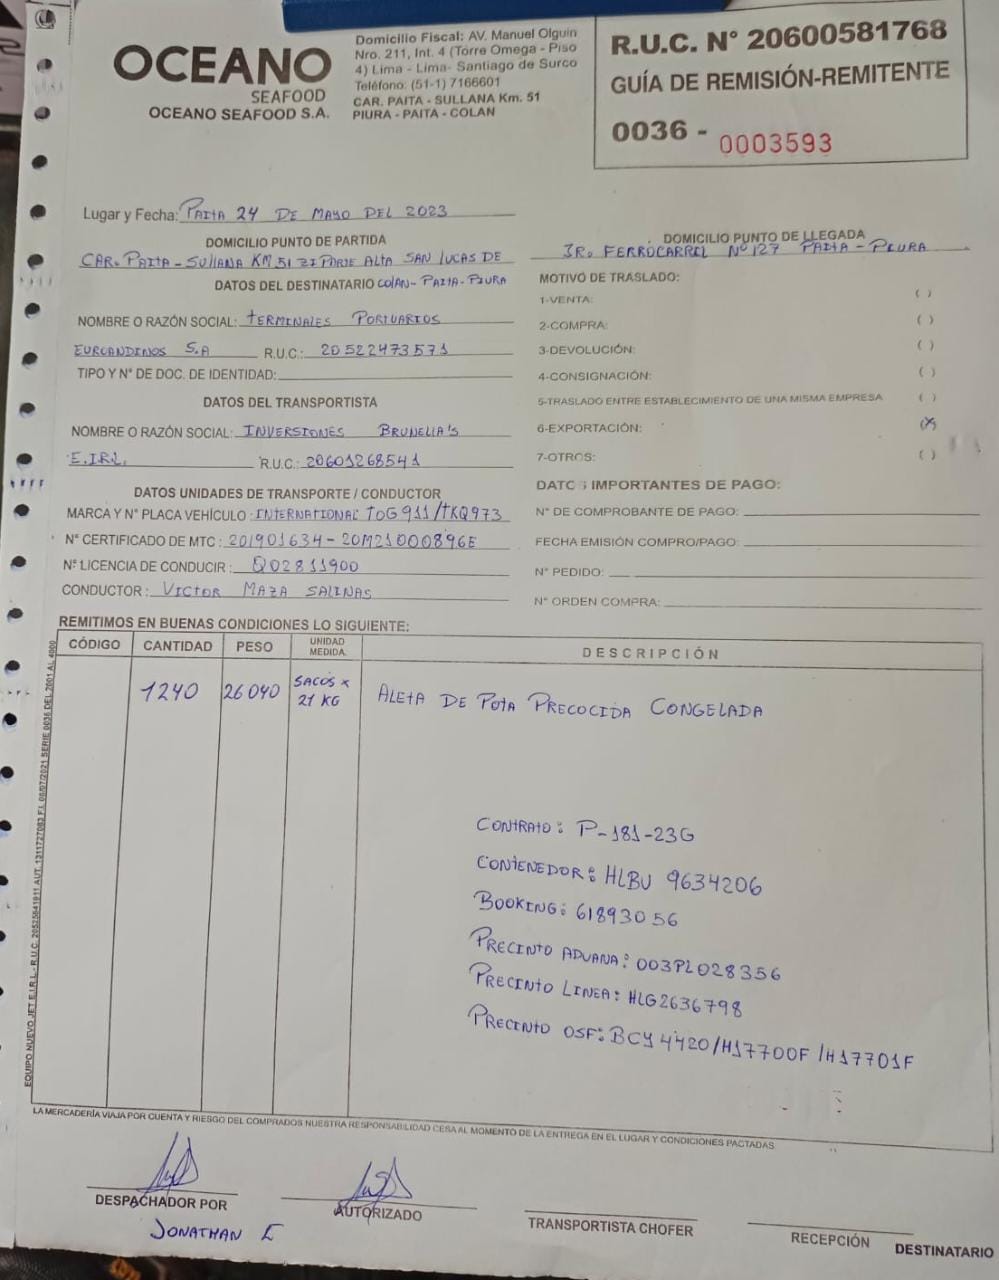 OCEANO
SEAFOOD
OCEANO SEAFOOD S.A.
Domicilio Fiscal: AV. Manuel Olguin
Nro. 211, Int. 4 (Torre Omega - Piso
4) Lima - Lima- Santiago de Surco
Teléfono: (51-1) 7166601
CAR. PAITA - SULLANA Km. 51
PIURA - PAITA - COLAN
R.U.C. N° 20600581768
GUÍA DE REMISIÓN-REMITENTE
0036 - 0003593
Lugar y Fecha: PAITA 24 DE MAYO DEL 2023
DOMICILIO PUNTO DE PARTIDA
CAR. PAITA - SULLANA KM 51 ZI PARTE ALTA SAN LUCAS DE
COLAN - PAITA - PIURA
DOMICILIO PUNTO DE LLEGADA
JR. FERROCARRIL N° 127 PAITA - PIURA
DATOS DEL DESTINATARIO
NOMBRE O RAZÓN SOCIAL: TERMINALES PORTUARIOS
EUROANDINOS S.A R.U.C.: 20522473571
TIPO Y N° DE DOC. DE IDENTIDAD:
DATOS DEL TRANSPORTISTA
NOMBRE O RAZÓN SOCIAL: INVERSIONES BRUNELIA'S
E.I.R.L. R.U.C.: 20601268541
DATOS UNIDADES DE TRANSPORTE / CONDUCTOR
MARCA Y N° PLACA VEHÍCULO: INTERNATIONAL TOG911/TKQ973
N° CERTIFICADO DE MTC: 201901634-20M21000896E
N° LICENCIA DE CONDUCIR: Q02811900
CONDUCTOR: VICTOR MAZA SALINAS
MOTIVO DE TRASLADO:
1-VENTA: ( )
2-COMPRA: ( )
3-DEVOLUCIÓN: ( )
4-CONSIGNACIÓN: ( )
5-TRASLADO ENTRE ESTABLECIMIENTO DE UNA MISMA EMPRESA ( )
6-EXPORTACIÓN: (X)
7-OTROS: ( )
DATOS IMPORTANTES DE PAGO:
N° DE COMPROBANTE DE PAGO:
FECHA EMISIÓN COMPRO/PAGO:
N° PEDIDO:
N° ORDEN COMPRA:
REMITIMOS EN BUENAS CONDICIONES LO SIGUIENTE:
CÓDIGO CANTIDAD PESO UNIDAD MEDIDA. DESCRIPCIÓN
1240 26040 SACOS x 21 KG ALETA DE POTA PRECOCIDA CONGELADA
CONTRATO: P-181-23G
CONTENEDOR: HLBU 9634206
BOOKING: 61893056
PRECINTO ADUANA: 003PL028356
PRECINTO LINEA: HLG2636798
PRECINTO OSF: BCY 4420/H17700F/H17701F
EQUIPO NUEVO JET E.I.R.L - R.U.C. 20525841911 AUT. 1311727083 F.I. 08/07/2021 SERIE 0036 DEL 2001 AL 4000
LA MERCADERÍA VIAJA POR CUENTA Y RIESGO DEL COMPRADOS NUESTRA RESPONSABILIDAD CESA AL MOMENTO DE LA ENTREGA EN EL LUGAR Y CONDICIONES PACTADAS
DESPACHADOR POR
JONATHAN E
AUTORIZADO
TRANSPORTISTA CHOFER
RECEPCIÓN DESTINATARIO